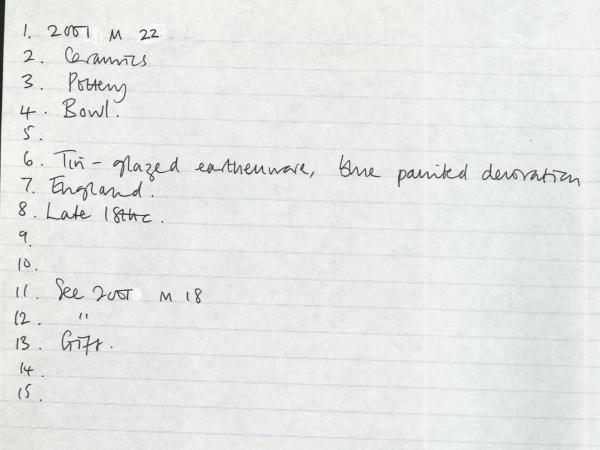 1. 2001 M 22
2. Ceramics
3. Pottery
4. Bowl.
5.
6. Tin-glazed earthenware, blue painted decoration
7. England.
8. Late 18thc.
9.
10.
11. See 2001 M 18
12. "
13. Gift.
14.
15.